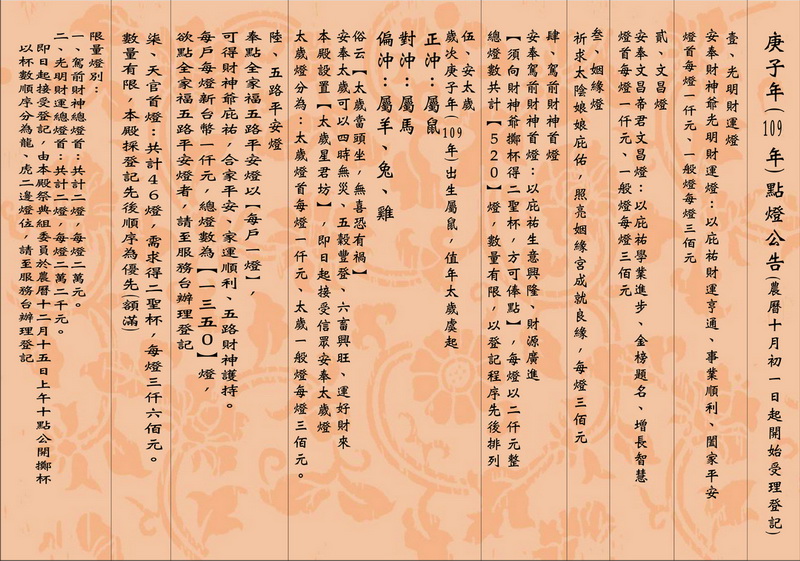 庚子年(109年)點燈公告(農曆十月初一日起開始受理登記)
壹、光明財運燈
安奉財神爺光明財運燈：以庇祐財運亨通、事業順利、闔家平安
燈首每燈一仟元、一般燈每燈三佰元
貳、文昌燈
安奉文昌帝君文昌燈：以庇祐學業進步、金榜題名、增長智慧
燈首每燈一仟元、一般燈每燈三佰元
叁、姻緣燈
祈求太陰娘娘庇佑，照亮姻緣宮成就良緣，每燈三佰元
肆、駕前財神首燈
安奉駕前財神首燈：以庇祐生意興隆、財源廣進
【須向財神爺擲杯得二聖杯，方可俸點】，每燈以二仟元整
總燈數共計【520】燈，數量有限，以登記程序先後排列
伍、安太歲
歲次庚子年(109年)出生屬鼠，值年太歲虔起
正沖：屬鼠
對沖：屬馬
偏沖：屬羊、兔、雞
俗云【太歲當頭坐，無喜恐有禍】
安奉太歲可以四時無災、五穀豐登、六畜興旺、運好財來
本殿設置【太歲星君坊】，即日起接受信眾安奉太歲燈
太歲燈分為：太歲燈首每燈一仟元、太歲一般燈每燈三佰元。
陸、五路平安燈
奉點全家福五路平安燈以【每戶一燈】，
可得財神爺庇祐，合家平安、家運順利、五路財神護持。
每戶每燈新台幣一仟元，總燈數為【一三五0】燈，
欲點全家福五路平安燈者，請至服務台辦理登記
柒、天官首燈：共計46燈，需求得二聖杯，每燈三仟六佰元。
數量有限，本殿採登記先後順序為優先(額滿)
限量燈別：
一、駕前財神總燈首：共計二燈，每燈二萬元。
二、光明財運總燈首：共計二燈，每燈二萬二千元。
即日起接受登記，由本殿祭典組委員於農曆十二月十五日上午十點公開擲杯
以杯數順序分為龍、虎二邊燈位，請至服務台辦理登記